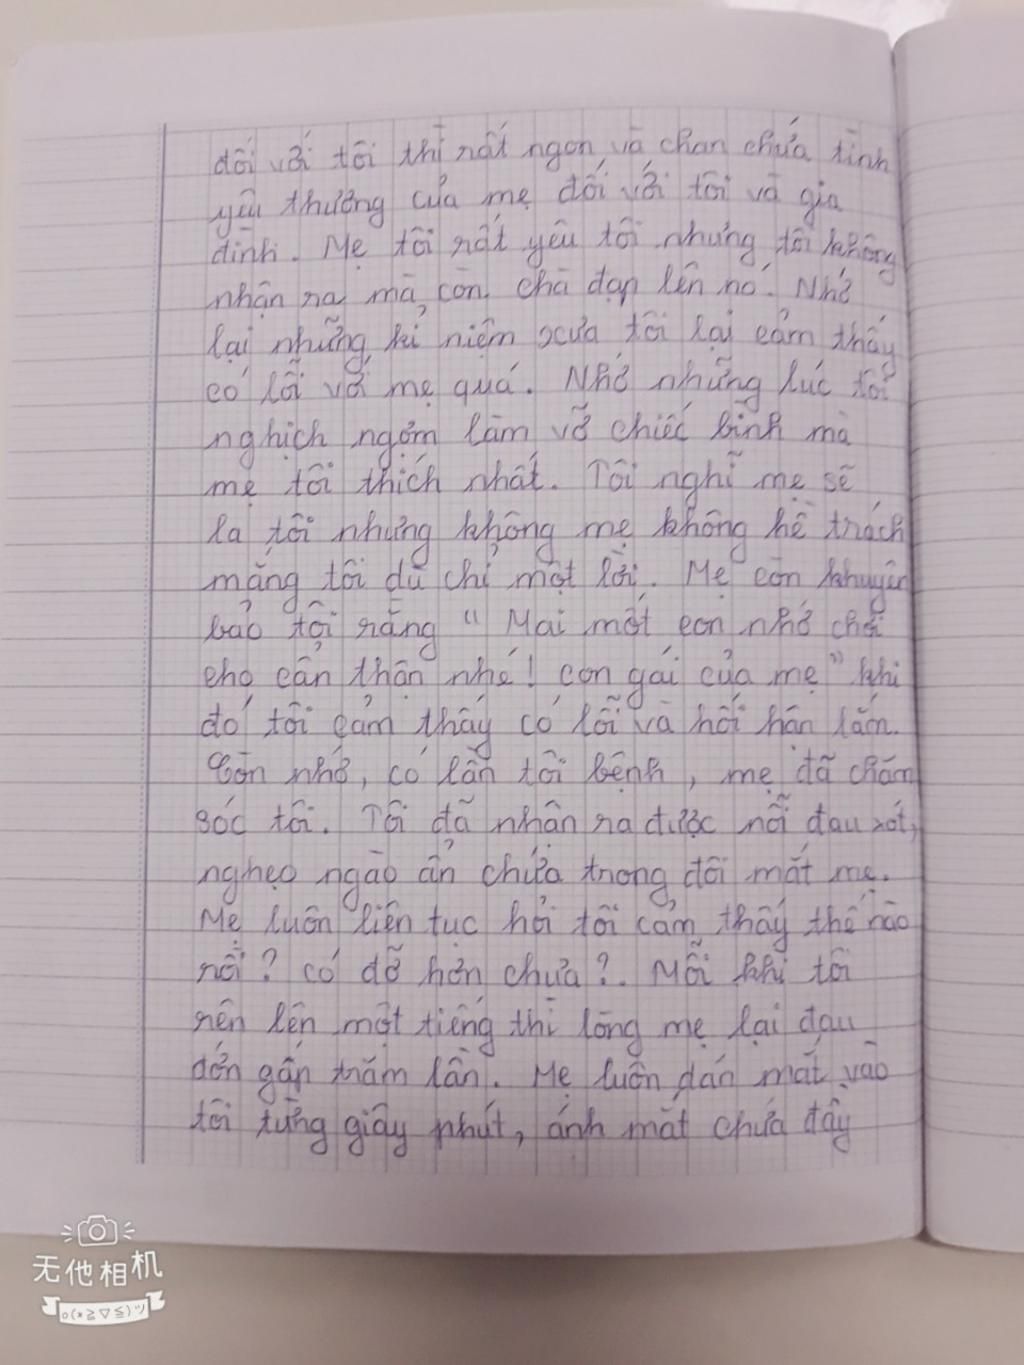 đối với tôi thì rất ngon và chan chứa tình
yêu thương của mẹ đối với tôi và gia
đình. Mẹ tôi rất yêu tôi nhưng tôi không
nhận ra mà còn chà đạp lên nó. Nhớ
lại những kỉ niệm xưa tôi lại cảm thấy
có lỗi với mẹ quá. Nhớ những lúc tôi
nghịch ngợm làm vỡ chiếc bình mà
mẹ tôi thích nhất. Tôi nghĩ mẹ sẽ
la tôi nhưng không mẹ không hề trách
mắng tôi dù chỉ một lời. Mẹ còn khuyên
bảo tôi rằng " Mai mốt con nhớ chơi
cho cẩn thận nhé! con gái của mẹ" khi
đó tôi cảm thấy có lỗi và hối hận lắm.
Còn nhớ, có lần tôi bệnh, mẹ đã chăm
sóc tôi. Tôi đã nhận ra được nỗi đau xót,
nghẹo ngào ẩn chứa trong đôi mắt mẹ.
Mẹ luôn liên tục hỏi tôi cảm thấy thế nào
rồi? có đỡ hơn chưa?. Mỗi khi tôi
rên lên một tiếng thì lòng mẹ lại đau
đớn gấp trăm lần. Mẹ luôn dán mắt vào
tôi từng giây phút, ánh mắt chứa đầy
无他相机
o(*≧▽≦)ツ